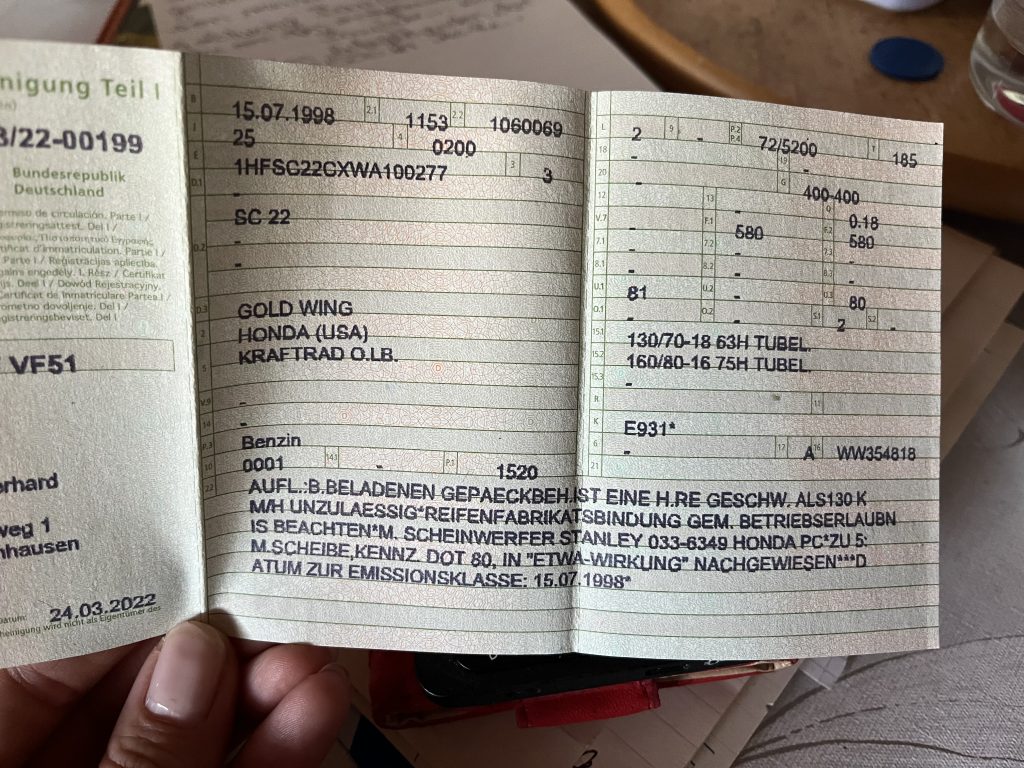 nigung Teil I
3/22-00199
Bundesrepublik
Deutschland
VF51
rhard
weg 1
nhausen
Datum: 24.03.2022
cheinigung wird nicht als Eigentümer des
B 15.07.1998 2.1 1153 2.2 1060069
J 25 4 0200
E 1HFSC22CXWA100277 3 3
D.1 -
SC 22
D.2 -
-
D.3 GOLD WING
2 HONDA (USA)
5 KRAFTRAD O.LB.
V.9 -
14 -
P.3 Benzin
10 0001 14.1 - P.1 1520
L 2 9 - P.2 P.4 72/5200 T 185
18 - 19 -
20 - G 400-400
12 - 13 - Q 0.18
V.7 - F.1 580 F.2 580
7.1 - 7.2 - 7.3 -
8.1 - 8.2 - 8.3 -
U.1 81 U.2 - U.3 80
O.1 - O.2 - S.1 2 S.2 -
15.1 130/70-18 63H TUBEL.
15.2 160/80-16 75H TUBEL.
15.3 -
R - 11
K E931*
6 - 17 A 16 WW354818
21
22 AUFL.:B.BELADENEN GEPAECKBEH.IST EINE H.RE GESCHW. ALS130 K
M/H UNZULAESSIG*REIFENFABRIKATSBINDUNG GEM. BETRIEBSERLAUBN
IS BEACHTEN*M. SCHEINWERFER STANLEY 033-6349 HONDA PC*ZU 5:
M.SCHEIBE,KENNZ. DOT 80, IN "ETWA-WIRKUNG" NACHGEWIESEN***D
ATUM ZUR EMISSIONSKLASSE: 15.07.1998*